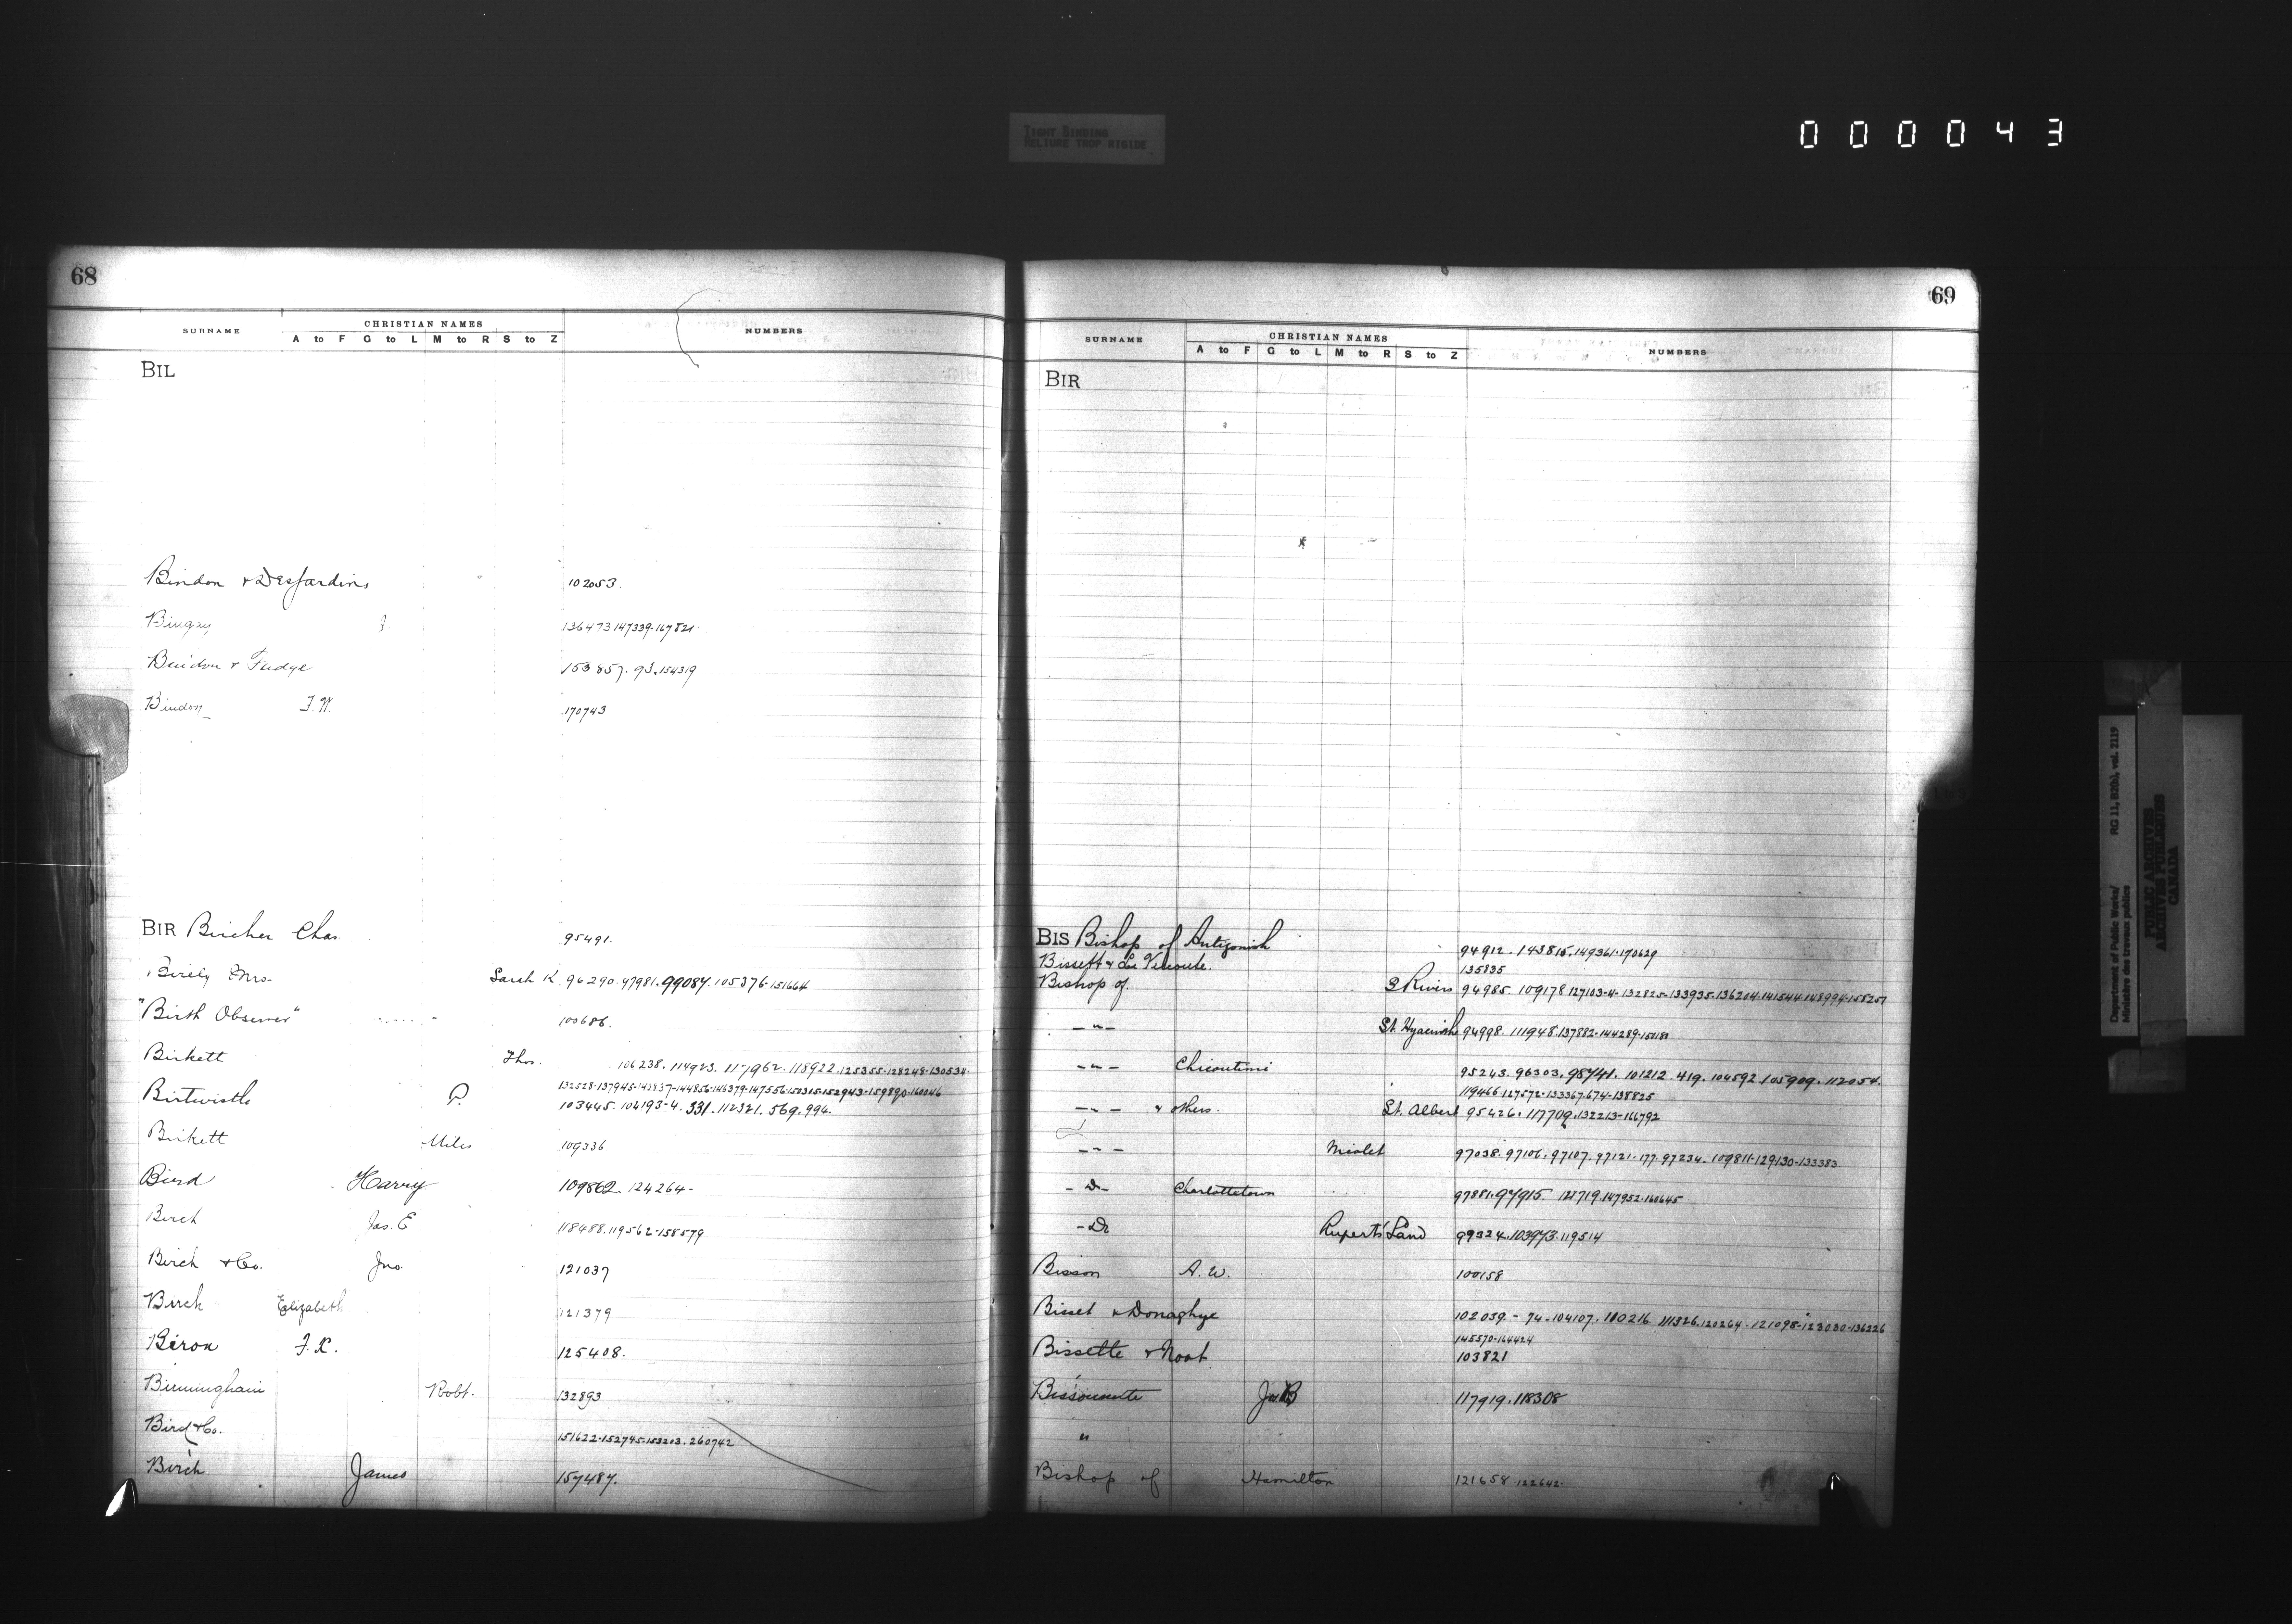 TIGHT BINDING
RELIURE TROP RIGIDE
000043
68
SURNAME CHRISTIAN NAMES NUMBERS
A to F G to L M to R S to Z
BIL
Bindon & Desjardins 102053.
Bingay J. 136473 147339-167821
Bindon & Fudge 153857. 93. 154319
Bindon F.W. 170743
BIR Bircher Chas. 95491.
Birely Mrs. Sarah K 96290. 97981. 99087. 105376-151664
"Birth Observer" 100686.
Birkett Thos. 106238. 114923. 117962. 118922. 125355-128248-130534
132528-137945-143837-144856-146379-147556-150315-152943-159890-160046
Birtwistle P. 103445. 104193-4. 331. 112321. 569. 994.
Birkett Miles 109336
Bird Harry 109862. 124264-
Birch Jas. E 118488. 119562-158579
Birch & Co. Jno. 121037
Birch Elizabeth 121379
Béron F.X. 125408.
Birmingham Robt. 132893
Bird & Co. 151622-152745-153203. 260742
Birch James 157487.
69
SURNAME CHRISTIAN NAMES NUMBERS
A to F G to L M to R S to Z
BIR
BIS Bishop of Antigonish 94912. 143815. 149361-170629
Bissett & Le Vicoute. 135835
Bishop of 3 Rivers 94985. 109178 127103-4-132825-133935-136204-141544-148994-158257
-"- St. Hyacinthe 94998. 111948. 137882-144289-151181
-"- Chicoutimi 95243. 96303. 98741. 101212. 419. 104592. 105909. 112054.
119466-127572-133367.674-138825
-"- & others. St. Albert 95426. 117709. 132213-166792
-"- Nicolet 97038. 97106. 97107. 97121-177. 97234. 109811-129130-133383
-Do- Charlottetown 97881. 97915. 121719. 147952-160645
-Do Rupert's Land 99324. 103973. 119514
Bisson A.W. 100158
Bisset & Donaghye 102059.- 74-104107. 110216 111326. 120264-121098-123030-136226
145570-164424
Bissette & Noat 103821
Bissonnette 117919. 118308
"
Bishop of Hamilton 121658. 122642.
Department of Public Works/ RG 11, B2(b), vol. 2119
Ministère des travaux publics
PUBLIC ARCHIVES
ARCHIVES PUBLIQUES
CANADA